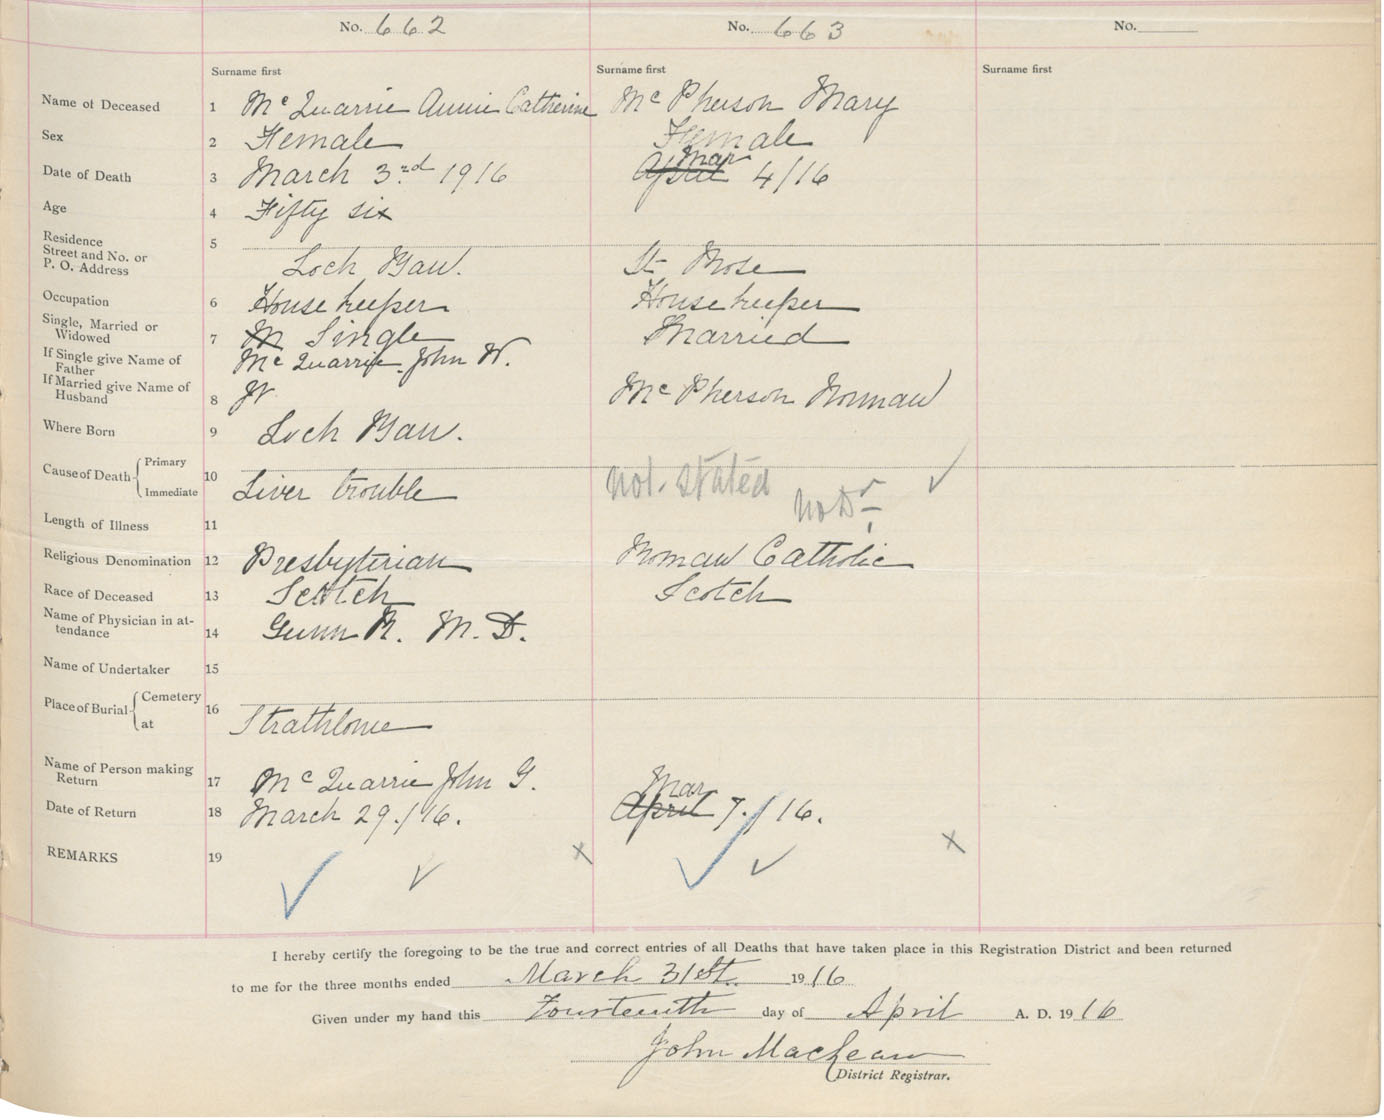 No. 662 No. 663 No.
Surname first Surname first Surname first
Name of Deceased 1 Mc Quarrie Annie Catherine Mc Pherson Mary
Sex 2 Female Female
Date of Death 3 March 3rd 1916 April Mar 4/16
Age 4 Fifty six
Residence 5
Street and No. or
P. O. Address Loch Ban. St Rose
Occupation 6 House keeper House keeper
Single, Married or
Widowed 7 M Single Married
If Single give Name of
Father Mc Quarrie John W.
If Married give Name of
Husband 8 Mc Pherson Norman
Where Born 9 Loch Ban.
Cause of Death Primary 10 not. stated
Immediate Liver trouble no Dr
Length of Illness 11
Religious Denomination 12 Presbyterian Roman Catholic
Race of Deceased 13 Scotch Scotch
Name of Physician in at-
tendance 14 Gunn R. M. D.
Name of Undertaker 15
Place of Burial Cemetery 16
at Strathlorne
Name of Person making
Return 17 Mc Quarrie John G.
Date of Return 18 March 29./16. April Mar 7./16.
REMARKS 19
I hereby certify the foregoing to be the true and correct entries of all Deaths that have taken place in this Registration District and been returned
to me for the three months ended March 31st. 1916
Given under my hand this Fourteenth day of April A. D. 1916
John MacLean
District Registrar.